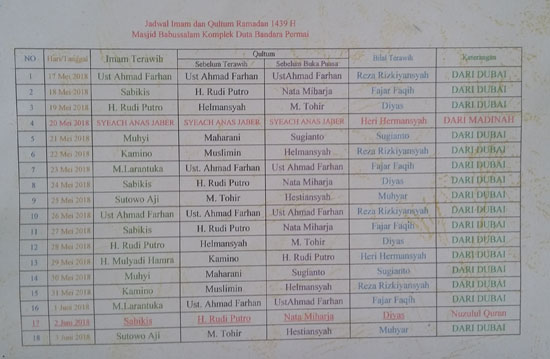 Jadwal Imam dan Qultum Ramadan 1439 H
Masjid Babussalam Komplek Duta Bandara Permai
NO Hari/Tanggal Imam Terawih Qultum Bilal Terawih Keterangan
Sebelum Terawih Sebelum Buka Puasa
1 17 Mei 2018 Ust Ahmad Farhan Ust Ahmad Farhan UstAhmad Farhan Reza Rizkiyansyah DARI DUBAI
2 18 Mei 2018 Sabikis H. Rudi Putro Nata Miharja Fajar Faqih DARI DUBAI
3 19 Mei 2018 H. Rudi Putro Helmansyah M. Tohir Diyas DARI DUBAI
4 20 Mei 2018 SYEACH ANAS JABER SYEACH ANAS JABER SYEACH ANAS JABER Heri Hermansyah DARI MADINAH
5 21 Mei 2018 Muhyi Maharani Sugianto Sugianto DARI DUBAI
6 22 Mei 2018 Kamino Muslimin Helmansyah Reza Rizkiyansyah DARI DUBAI
7 23 Mei 2018 M.Larantuka Ust. Ahmad Farhan Ust Ahmad Farhan Fajar Faqih DARI DUBAI
8 24 Mei 2018 Sabikis H. Rudi Putro Nata Miharja Diyas DARI DUBAI
9 25 Mei 2018 Sutowo Aji M. Tohir Hestiansyah Muhyar DARI DUBAI
10 26 Mei 2018 Ust Ahmad Farhan Ust. Ahmad Farhan Ust Ahmad Farhan Reza Rizkiyansyah DARI DUBAI
11 27 Mei 2018 Sabikis H. Rudi Putro Nata Miharja Fajar Faqih DARI DUBAI
12 28 Mei 2018 H. Rudi Putro Helmansyah M. Tohir Diyas DARI DUBAI
13 29 Mei 2018 H. Mulyadi Hamra Kamino H. Rudi Putro Heri Hermansyah DARI DUBAI
14 30 Mei 2018 Muhyi Maharani Sugianto Sugianto DARI DUBAI
15 31 Mei 2018 Kamino Muslimin Helmansyah Reza Rizkiyansyah DARI DUBAI
16 1 Juni 2018 M.Larantuka Ust. Ahmad Farhan UstAhmad Farhan Fajar Faqih DARI DUBAI
17 2 Juni 2018 Sabikis H. Rudi Putro Nata Miharja Diyas Nuzulul Quran
18 3 Juni 2018 Sutowo Aji M. Tohir Hestiansyah Muhyar DARI DUBAI